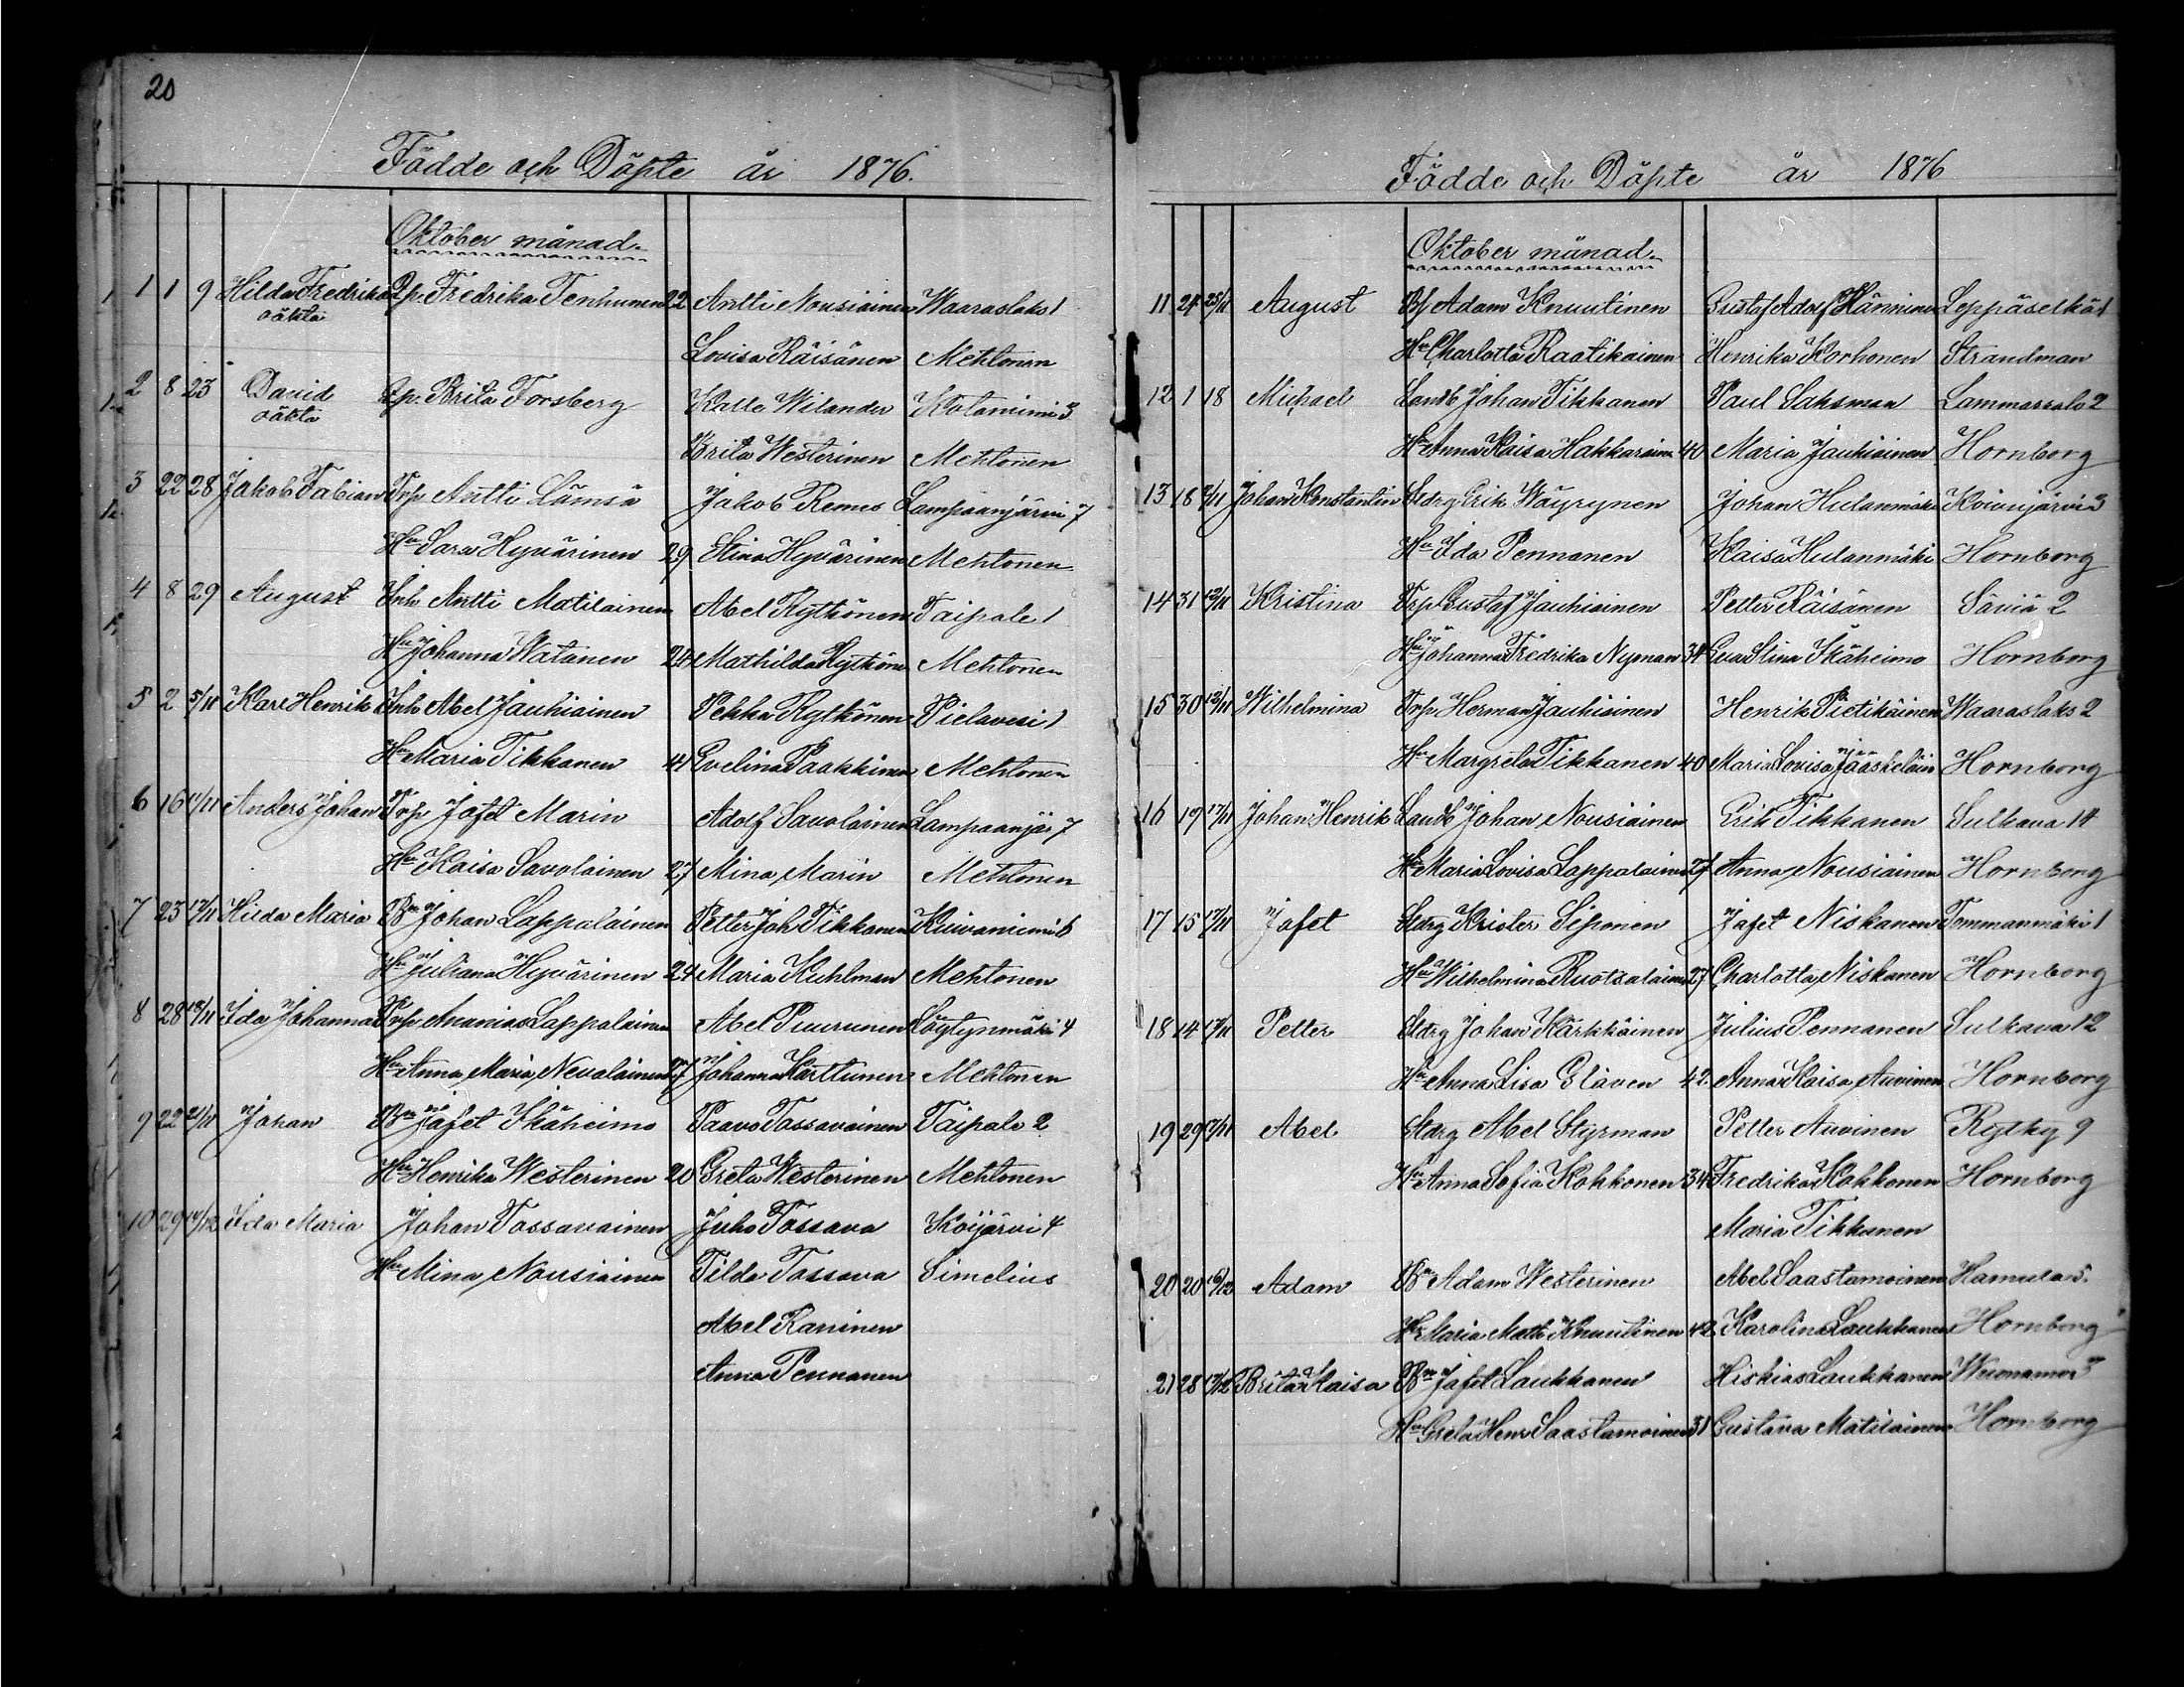 20
Födde och Döpte år 1876.
Oktober månad.
1 1 9 Hilda Fredrika Pp. Fredrika Tenhunen 22 Antti Nousiainen Waaraslaks 1
oäkta
Lovisa Räisänen Mehtonen
2 8 23 David Pp. Brita Forsberg Kalle Wilander Kotaniemi 3
oäkta
Brita Westerinen Mehtonen
3 22 28 Jakob Fabian Trp Antti Lämsä Jakob Remes Lampaanjärvi 7
Hu Sara Hyvärinen 29 Stina Hyvärinen Mehtonen
4 8 29 August Inh Antti Matilainen Abel Rytkönen Taipale 1
Hu Johanna Watanen 24 Mathilda Rytköne Mehtonen
5 2 5/11 Karl Henrik Inh Abel Jauhiainen Pekka Rytkönen Pielavesi 1
Hu Maria Tikkanen 41 Evelina Paakkinen Mehtonen
6 16 11/11 Anders Johan Trp Jafet Marin Adolf Savolainen Lampaanjär 7
Hu Kaisa Savolainen 27 Mina Marin Mehtonen
7 23 12/11 Hilda Maria Bn Johan Lappalainen Petter Joh Tikkanen Kuivaniemi 6
Hu Juliana Hyvärinen 24 Maria Kuhlman Mehtonen
8 28 18/11 Ida Johanna Trp Ananias Lappalainen Abel Puurunen Löytynmäki 4
Hu Anna Maria Nevalainen 27 Johanna Karttunen Mehtonen
9 22 21/11 Johan Bn Jafet Skäheimo Paavo Tossavainen Taipale 2
Hu Henrika Westerinen 20 Greta Westerinen Mehtonen
10 29 14/12 Ida Maria Johan Tossavainen Juho Tossava Koijärvi 4
Hu Mina Nousiainen Tilda Tossava Simelius
Abel Karinen
Anna Pennanen
Födde och Döpte år 1876
Oktober månad.
11 24 25/11 August Bf Adam Knuutinen Gustaf Adolf Hänninen Leppäselkä 1
Hu Charlotta Raatikainen Henrika Korhonen Strandman
12 1 18 Michael Landb Johan Tikkanen Paul Saksman Lammassalo 2
Hu Anna Kaisa Hakkarainen 40 Maria Jauhiainen Hornborg
13 18 Johan Konstantin Stdrg Erik Wäyrynen Johan Hulanmäki Koivujärvi 3
Hu Ida Pennanen Kaisa Hulanmäki Hornborg
14 31 12/11 Kristina Trp Gustaf Jauhiainen Petter Räisänen Säviä 2
Hu Johanna Fredrika Nyman 34 Eva Stina Skäheimo Hornborg
15 30 13/11 Wilhelmina Trp Herman Jauhiainen Henrik Pietikäinen Waaraslaks 2
Hu Margreta Tikkanen 40 Maria Lovisa Jääskeläin Hornborg
16 19 17/11 Johan Henrik Landb Johan Nousiainen Erik Tikkanen Sulkava 14
Hu Maria Lovisa Lappalainen 27 Anna Nousiainen Hornborg
17 15 17/11 Jafet Stdrg Krister Siponen Jafet Niskanen Tommanmäki 1
Hu Wilhelmina Ruotsalainen 27 Charlotta Niskanen Hornborg
18 14 17/11 Petter Stdrg Johan Kärkkäinen Julius Pennanen Sulkava 12
Hu Anna Lisa Glaven 42 Anna Kaisa Auvinen Hornborg
19 29 17/11 Abel Stdrg Abel Styrman Petter Auvinen Rytky 9
Hu Anna Sofia Kokkonen 34 Fredrika Kokkonen Hornborg
Maria Tikkanen
20 20 16/12 Adam Bn Adam Westerinen Abel Saastamoinen Hamula 5.
Hu Maria Math Knuutinen 42 Karolina Laukkanen Hornborg
21 28 17/12 Brita Kaisa Bn Jafet Laukkanen Hiskias Laukkanen Wuonamo 3
Hu Greta Henr Saastamoinen 31 Gustava Matilainen Hornborg